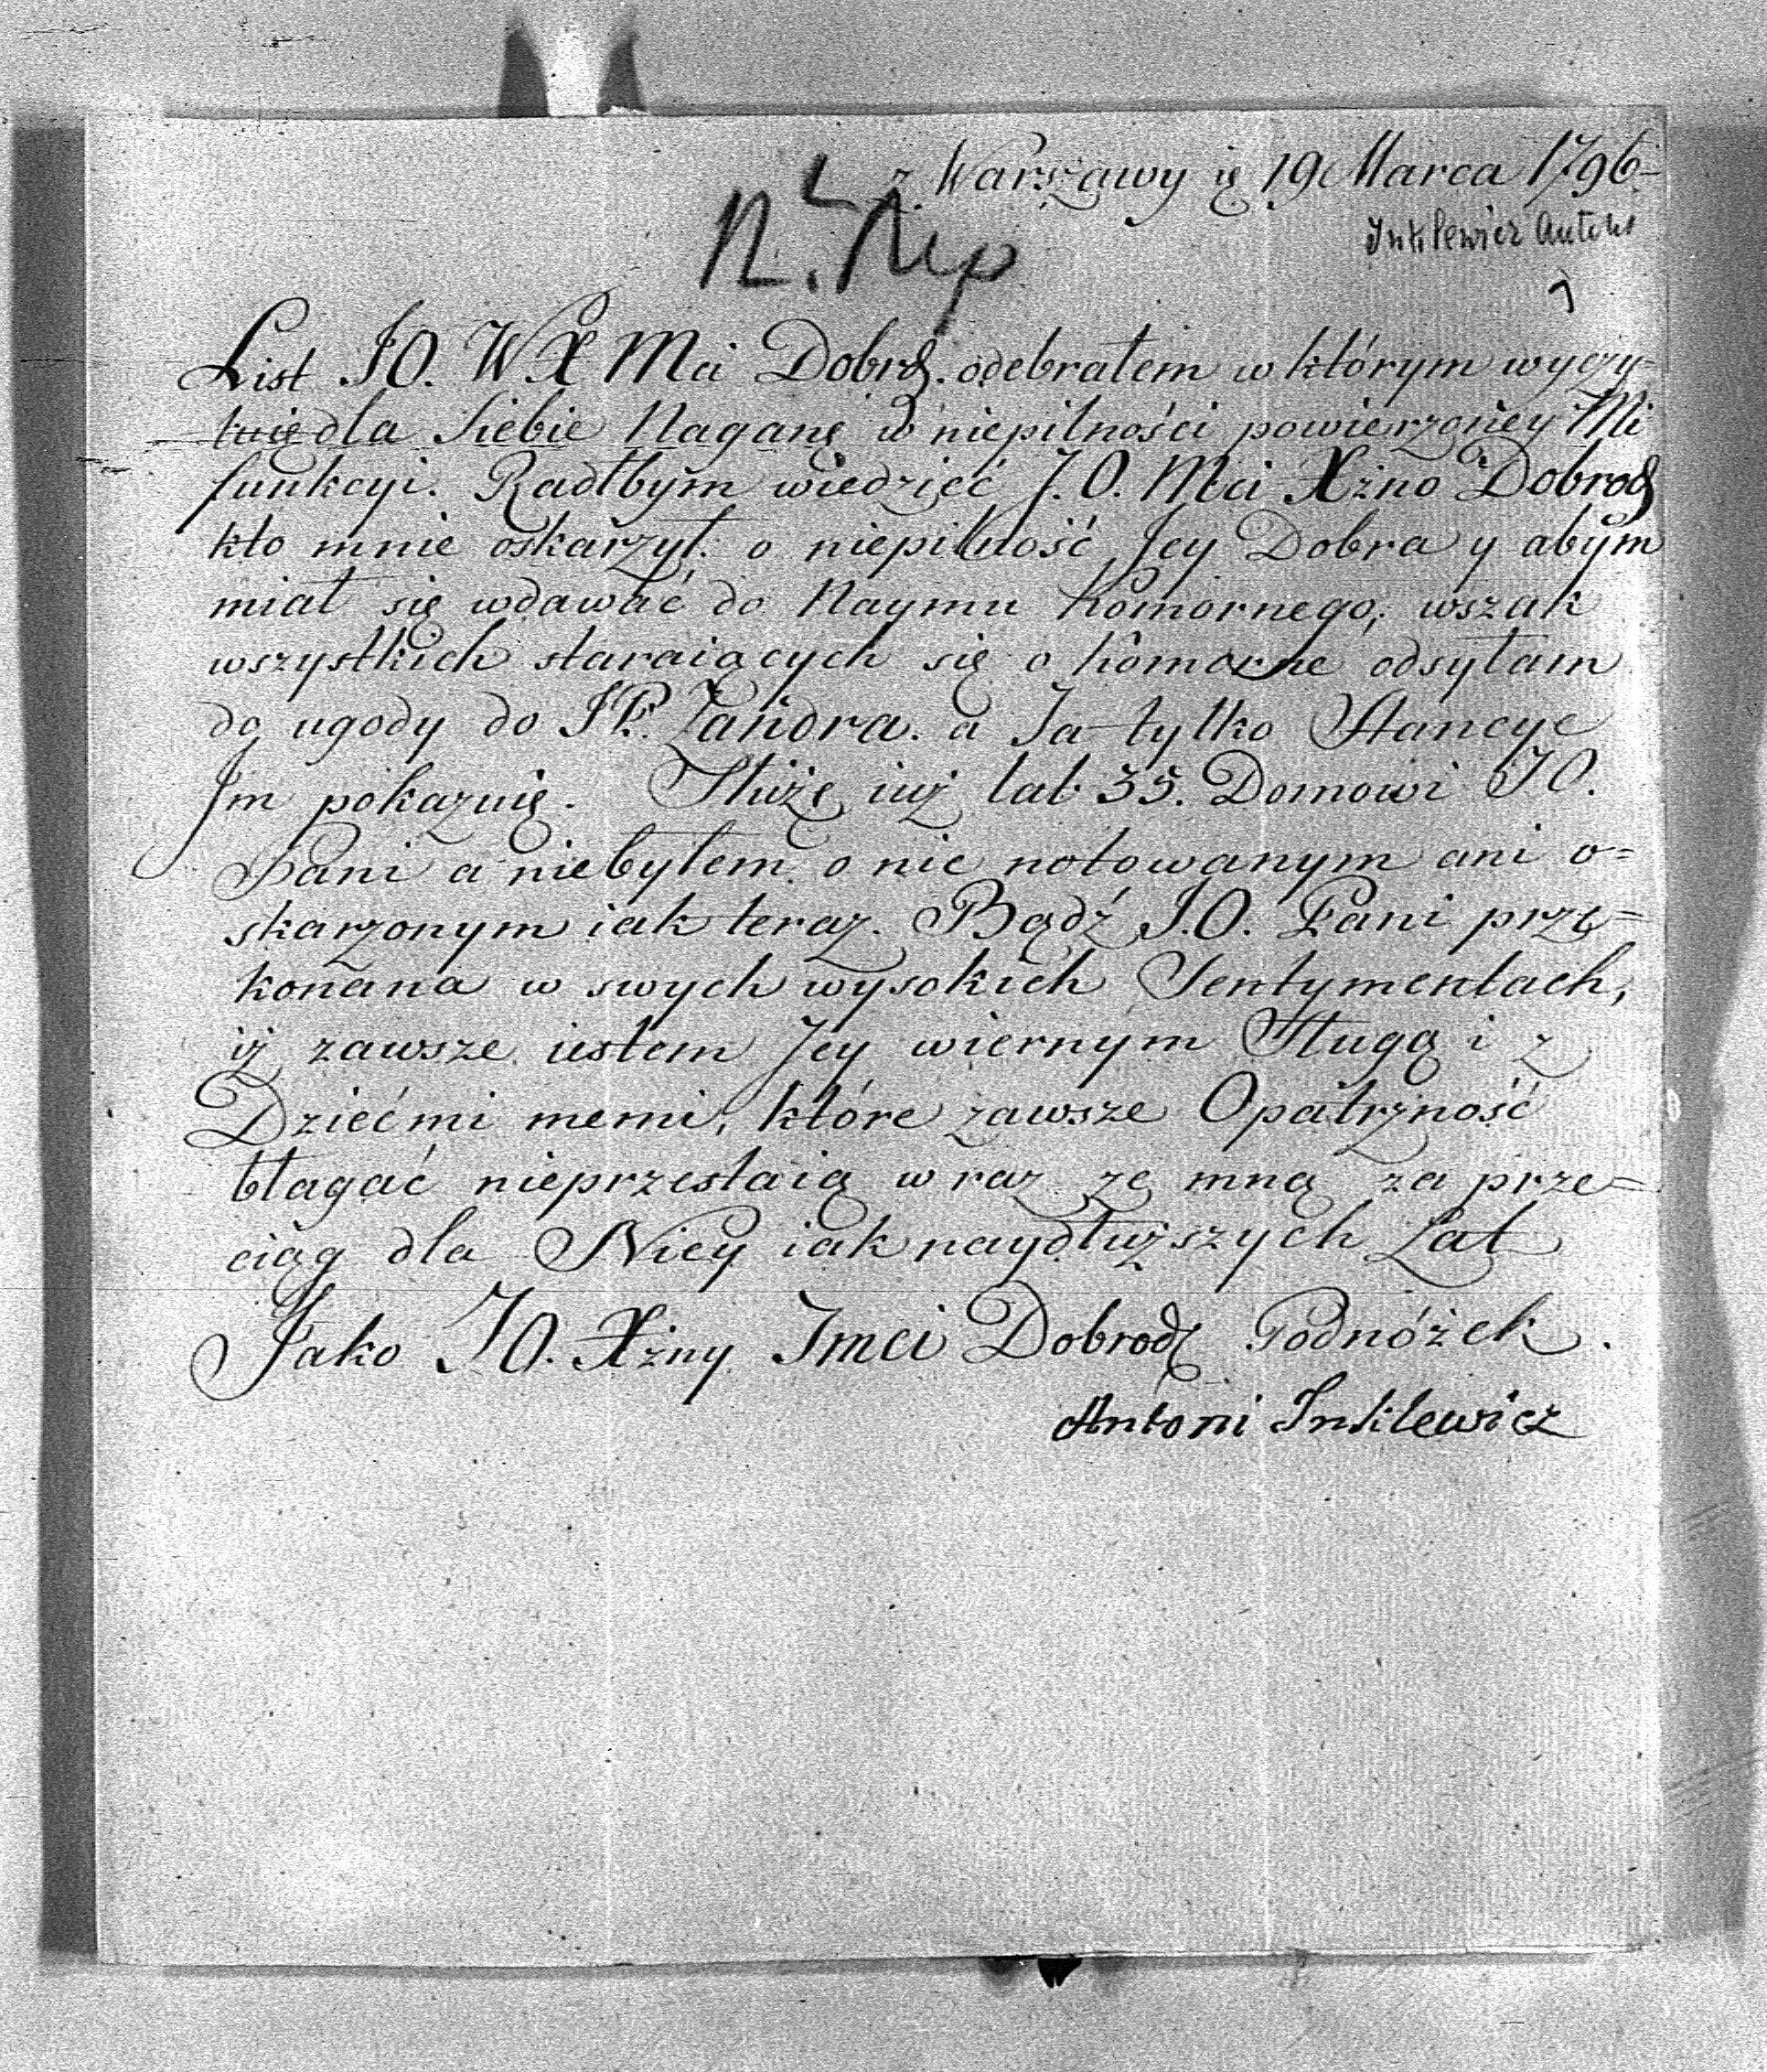 z Warszawy ię 19 Marca 1796
N. Rep
Inklewicz Antoni
List JO. W X Mci Dobrodz. odebrałem w którym wyczy-
tuię dla Siebie Naganę w niepilności powierzoney Mi
funkcyi. Radłbym wiedzieć J.O. Mci Xżno Dobrodz
kto mnie oskarzył. o niepilność Jey Dobra y abym
miał się wdawać do Naymu Komornego, wszak
wszystkich staraiących się o komorne odsyłam
do ugody do JP. Zandra. a Ja tylko Stancye
Jm pokazuię. Służę iuż lat 35. Domowi JO.
Pani a niebyłem o nic notowanym ani o=
skarzonym iak teraz. Bądź J.O. Pani prze=
konana w swych wysokich Sentymentach,
iż zawsze iestem Jey wiernym Sługą i z
Dziećmi memi, które zawsze Opatrzność
błagać nieprzestaią wraz ze mną za prze=
ciąg dla Niey iak naydłuższych Lat
Jako JO. Xżny Jmci Dobrodz Podnóżek.
Antoni Inklewicz